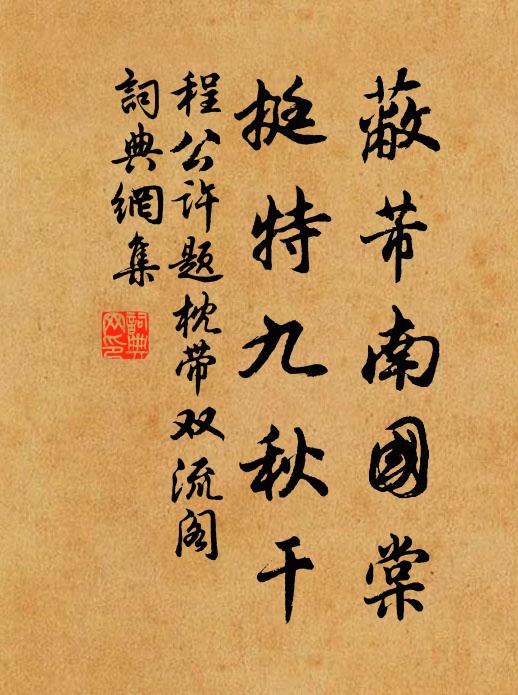 蔽芾南國棠
挺特九秋干
程公许题枕带双流阁
詞典網集
詞典
网印